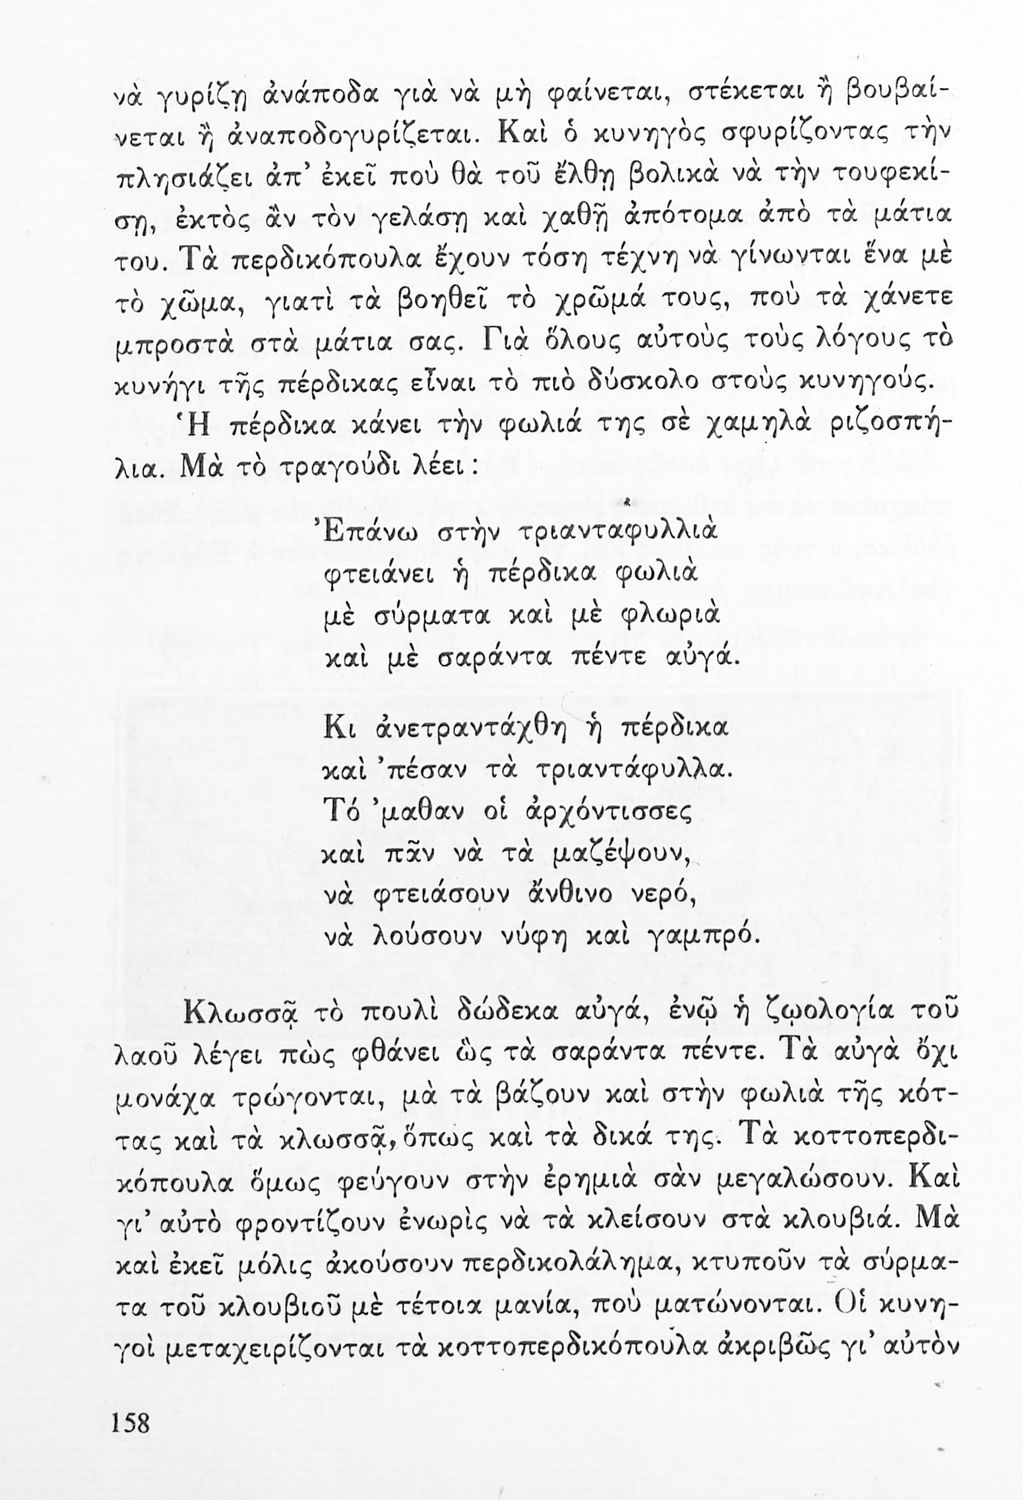 νὰ γυρίζῃ ἀνάποδα γιὰ νὰ μὴ φαίνεται, στέκεται ἢ βουβαί-
νεται ἢ ἀναποδογυρίζεται. Καὶ ὁ κυνηγὸς σφυρίζοντας τὴν
πλησιάζει ἀπ’ ἐκεῖ ποὺ θὰ τοῦ ἔλθῃ βολικὰ νὰ τὴν τουφεκί-
σῃ, ἐκτὸς ἂν τὸν γελάσῃ καὶ χαθῇ ἀπότομα ἀπὸ τὰ μάτια
του. Τὰ περδικόπουλα ἔχουν τόση τέχνη νὰ γίνωνται ἕνα μὲ
τὸ χῶμα, γιατὶ τὰ βοηθεῖ τὸ χρῶμά τους, ποὺ τὰ χάνετε
μπροστὰ στὰ μάτια σας. Γιὰ ὅλους αὐτοὺς τοὺς λόγους τὸ
κυνήγι τῆς πέρδικας εἶναι τὸ πιὸ δύσκολο στοὺς κυνηγούς.
Ἡ πέρδικα κάνει τὴν φωλιά της σὲ χαμηλὰ ριζοσπή-
λια. Μὰ τὸ τραγούδι λέει :
Ἐπάνω στὴν τριανταφυλλιὰ
φτειάνει ἡ πέρδικα φωλιὰ
μὲ σύρματα καὶ μὲ φλωριὰ
καὶ μὲ σαράντα πέντε αὐγά.
Κι ἀνετραντάχθη ἡ πέρδικα
καὶ ’πέσαν τὰ τριαντάφυλλα.
Τό ’μαθαν οἱ ἀρχόντισσες
καὶ πᾶν νὰ τὰ μαζέψουν,
νὰ φτειάσουν ἄνθινο νερό,
νὰ λούσουν νύφη καὶ γαμπρό.
Κλωσσᾷ τὸ πουλὶ δώδεκα αὐγά, ἐνῷ ἡ ζῳολογία τοῦ
λαοῦ λέγει πὼς φθάνει ὣς τὰ σαράντα πέντε. Τὰ αὐγὰ ὄχι
μονάχα τρώγονται, μὰ τὰ βάζουν καὶ στὴν φωλιὰ τῆς κότ-
τας καὶ τὰ κλωσσᾷ, ὅπως καὶ τὰ δικά της. Τὰ κοττοπερδι-
κόπουλα ὅμως φεύγουν στὴν ἐρημιὰ σὰν μεγαλώσουν. Καὶ
γι’ αὐτὸ φροντίζουν ἐνωρὶς νὰ τὰ κλείσουν στὰ κλουβιά. Μὰ
καὶ ἐκεῖ μόλις ἀκούσουν περδικολάλημα, κτυποῦν τὰ σύρμα-
τα τοῦ κλουβιοῦ μὲ τέτοια μανία, ποὺ ματώνονται. Οἱ κυνη-
γοὶ μεταχειρίζονται τὰ κοττοπερδικόπουλα ἀκριβῶς γι’ αὐτὸν
158